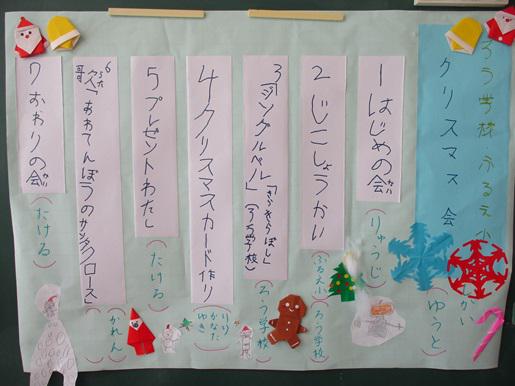 ろう学校・ふるえ小
クリスマス会
かい
(ゆうと)
1 はじめの会
(りゅうじ)
2 じこしょうかい
(ふるえ小)(ろう学校)
3「ジングルベル」「きらきらぼし」(ろう学校)
(ろう学校)
4 クリスマスカード作り
(りり かなた ゆき)
5 プレゼントわたし
(たける)
6 歌「あわてんぼうのサンタクロース」
うた
(かれん)
7 おわりの会
かい
(たける)